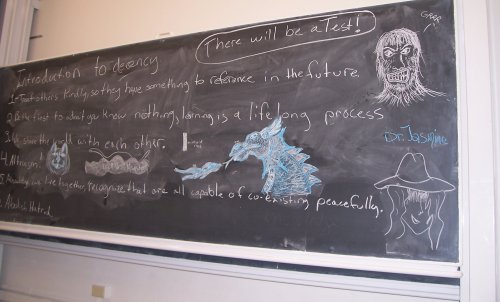 There will be a Test!
GRRR
Introduction to decency
1. Treat others kindly, so they have something to reference in the future
2. Be the first to admit you know nothing, learning is a life long process
3. We share the with each other.
Dr. Jasmine
4.
5. we live together, recognize that are all capable of co-existing peacefully.
Abolish Hatred